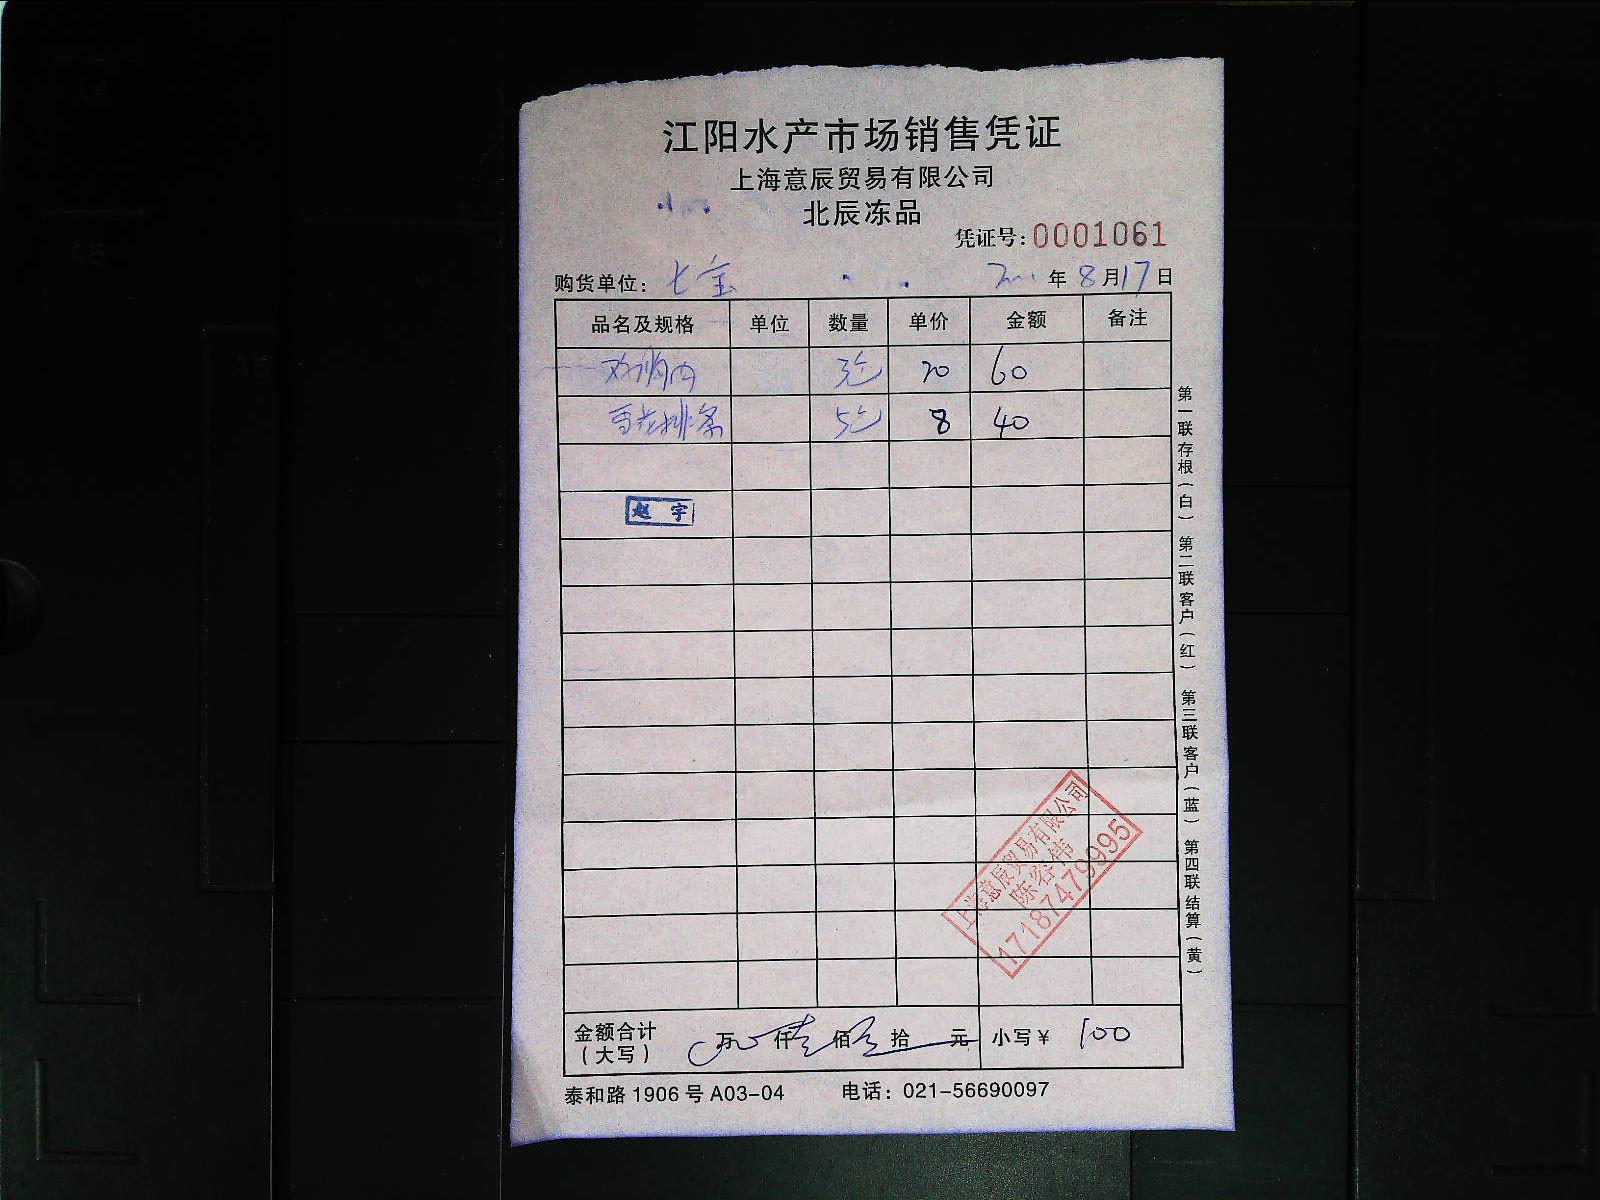 江阳水产市场销售凭证
上海意辰贸易有限公司
北辰冻品
凭证号:0001061
购货单位: 七宝 年 8 月 17 日
品名及规格 单位 数量 单价 金额 备注
3 20 60
雪花排条 5 8 40
赵宇
上海意辰贸易有限公司
陈容伟
17187479995
金额合计(大写) 万 仟 壹 佰 拾 元 小写¥ 100
泰和路 1906 号 A03-04 电话: 021-56690097
第一联存根(白) 第二联客户(红) 第三联客户(蓝) 第四联结算(黄)